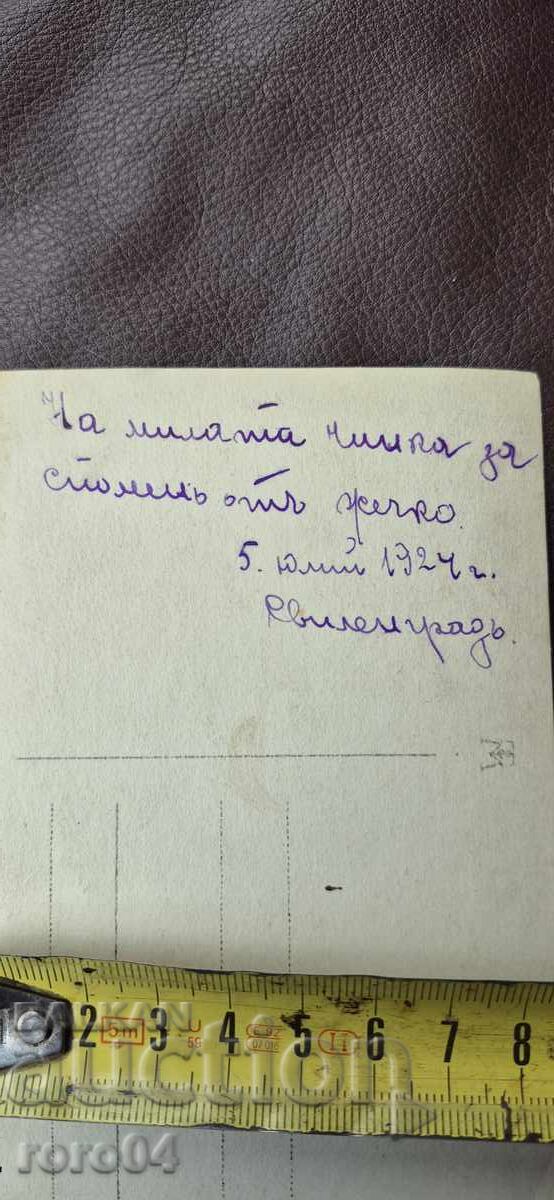 На милата чинка за
споменъ отъ Жечко.
5. юлий 1924 г.
Свиленградъ.
2 5m 3 59 4 5 II 6 7 8
BALKAN
auction
roro04